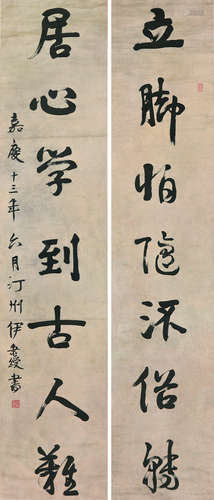 立脚怕随流俗轉
居心学到古人難
嘉慶十三年六月汀州伊秉綬書